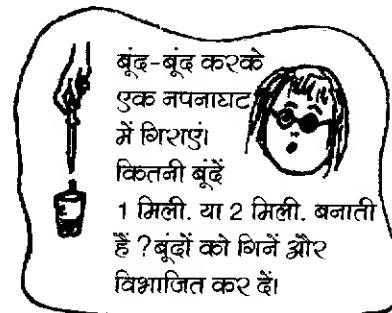 बूंद-बूंद करके
एक नपनाघट
में गिराएं।
कितनी बूंदें
1 मिली. या 2 मिली. बनाती
हैं ? बूंदों को गिनें और
विभाजित कर दें।